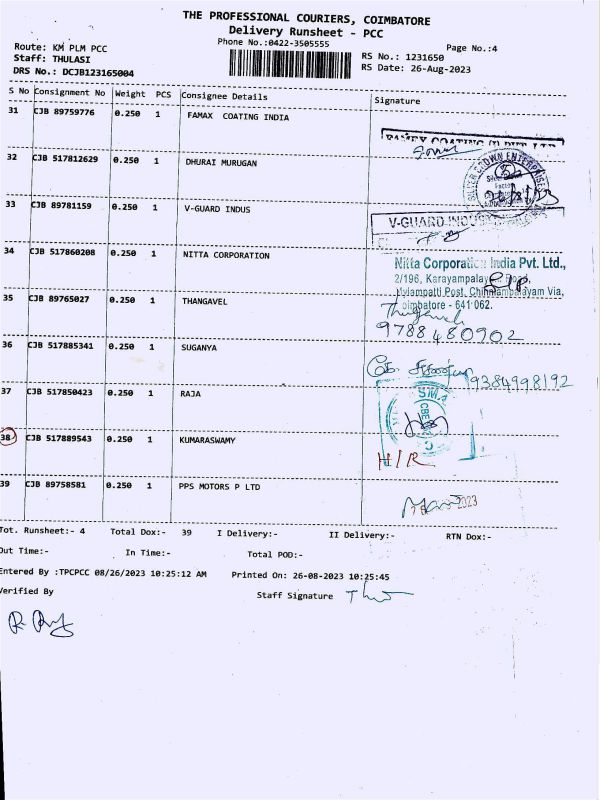 THE PROFESSIONAL COURIERS, COIMBATORE
Delivery Runsheet - PCC
Phone No.:0422-3505555
Page No.:4
Route: KM PLM PCC
Staff: THULASI
DRS No.: DCJB123165004
RS No.: 1231650
RS Date: 26-Aug-2023
S No Consignment No Weight PCS Consignee Details Signature
31 CJB 89759776 0.250 1 FAMAX COATING INDIA
32 CJB 517812629 0.250 1 DHURAI MURUGAN
33 CJB 89781159 0.250 1 V-GUARD INDUS
V-GUARD
34 CJB 517860208 0.250 1 NITTA CORPORATION
Nitta Corporation India Pvt. Ltd.,
2/196, Karayampalayam Road,
Mylampatti Post, Chinniampalayam Via,
oimbatore - 641 062.
35 CJB 89765027 0.250 1 THANGAVEL
Thangavel
9788480902
36 CJB 517885341 0.250 1 SUGANYA
9384998192
37 CJB 517850423 0.250 1 RAJA
38 CJB 517889543 0.250 1 KUMARASWAMY
H/R
39 CJB 89758581 0.250 1 PPS MOTORS P LTD
2023
Tot. Runsheet:- 4 Total Dox:- 39 I Delivery:- II Delivery:- RTN Dox:-
Out Time:- In Time:- Total POD:-
Entered By :TPCPCC 08/26/2023 10:25:12 AM Printed On: 26-08-2023 10:25:45
Verified By Staff Signature